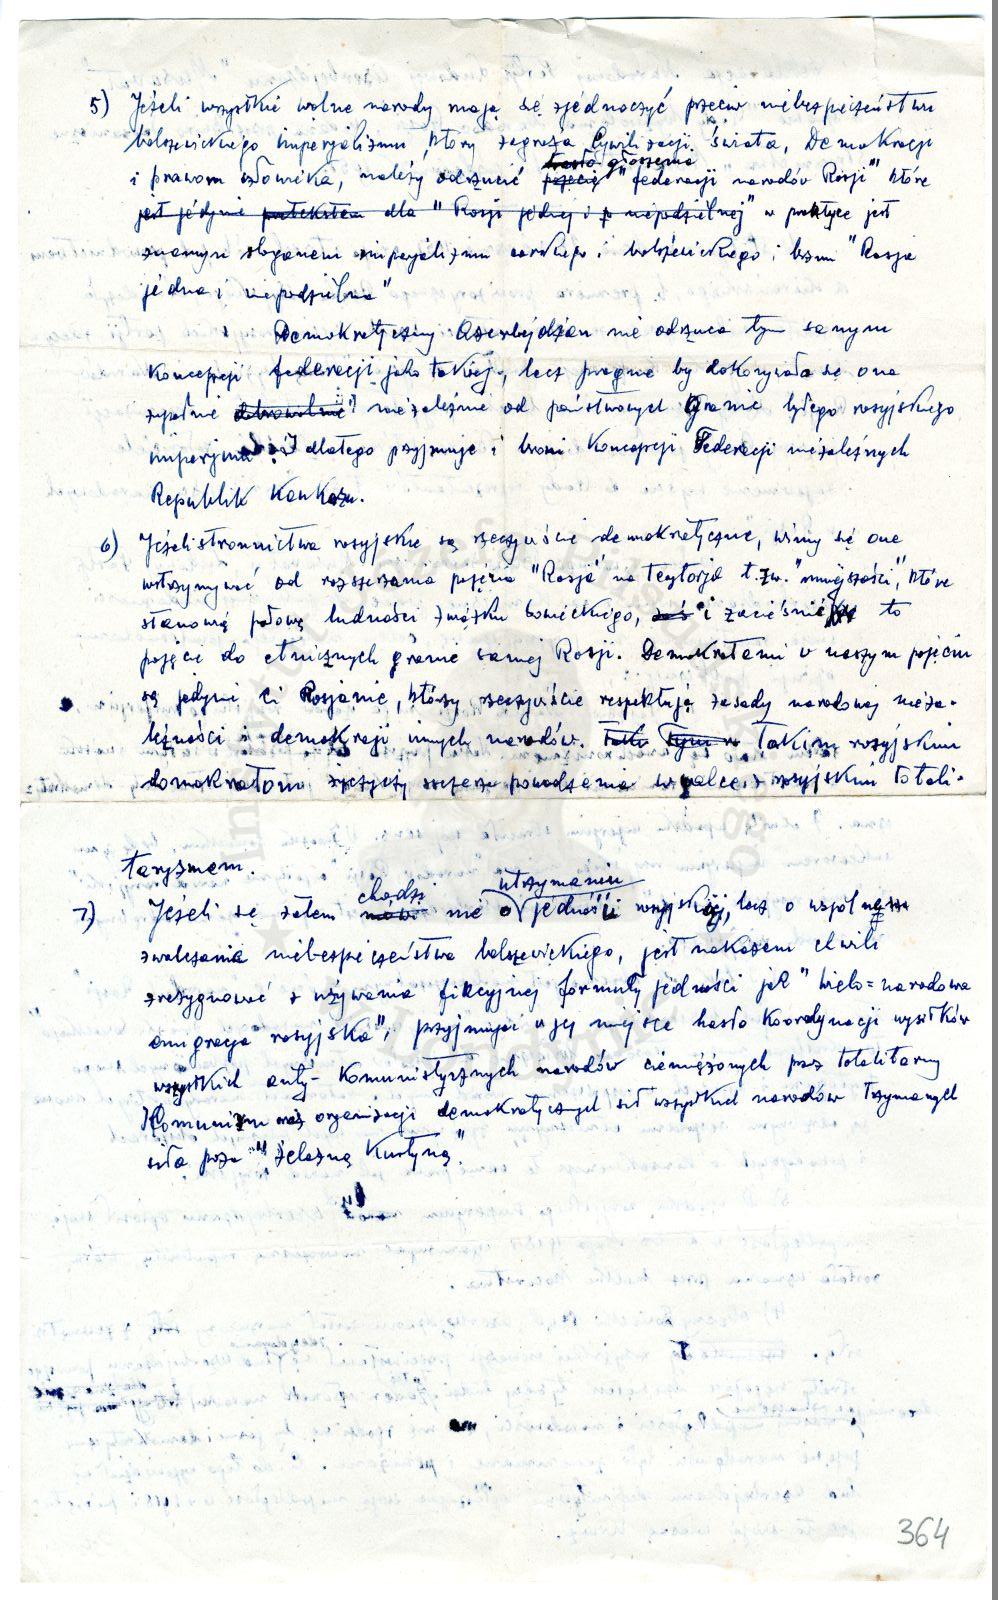 5) Jeżeli wszystkie wolne narody mają się zjednoczyć przeciw niebezpieczeństwu
bolszewickiego imperjalizmu, który zagraża Cywilizacji Świata, Demokracji
hasło głoszenia
i prawom człowieka, należy odrzucić pojęcie "federacji narodów Rosji" które
jest jedynie pretekstem dla "Rosji jednej i niepodzielnej" w praktyce jest
znanym sloganem imperjalizmu carskiego i bolszewickiego i brzmi "Rosja
jedna i niepodzielna"
Demokratyczny Azerbejdżan nie odrzuca tym samym
Koncepcji federacji jako takiej, lecz pragnie by dokonywała się ona
zupełnie dobrowolnie i niezależnie od państwowych Granic byłego rosyjskiego
imperjum i dlatego przyjmuje i broni Koncepcji Federacji niezależnych
Republik Kaukazu.
6) Jeżeli stronnictwa rosyjskie są rzeczywiście demokratyczne, winny się one
wstrzymywać od rozszerzania pojęcia "Rosja" na Terytorja t.zw. "mniejszości", które
stanowią połowę ludności związku sowieckiego, zaś i zacieśnić to
pojęcie do etnicznych granic samej Rosji. Demokratami w naszym pojęciu
są jedynie ci Rosjanie, którzy rzeczywiście respektują zasady narodowej nieza-
leżności i demokracji innych narodów. Tylko Tym Takim rosyjskim
demokratom życzymy szczerze powodzenia w walce z rosyjskim totali-
taryzmem.
chodzi utrzymaniu
7) Jeżeli się zatem mówi nie o jedności rosyjskiej, lecz o wspólne
zwalczanie niebezpieczeństwa bolszewickiego, jest nakazem chwili
zrezygnować z używania fikcyjnej formuły jedności jak "wielo=narodowa
emigracja rosyjska", przyjmując w jej miejsce hasło Koordynacji wysiłków
wszystkich anty-Komunistycznych narodów ciemiężonych przez totalitarny
Komunizm oraz organizacji demokratycznych sił wszystkich narodów trzymanych
siłą poza "Żelazną Kurtyną."
364